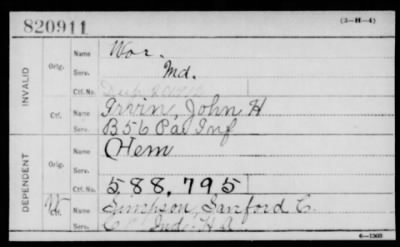 820911
(3-H-4)
INVALID
Orig.
Name
Wor.
Serv.
Md.
Ctf. No.
Ctf.
Name
Irvin, John H
Serv.
B 56 Pa. Inf
DEPENDENT
Orig.
Name
Hem
Serv.
Ctf. No.
588.795
W
Ctf.
Name
Simpson, Sanford C.
Serv.
Ind. H.A.